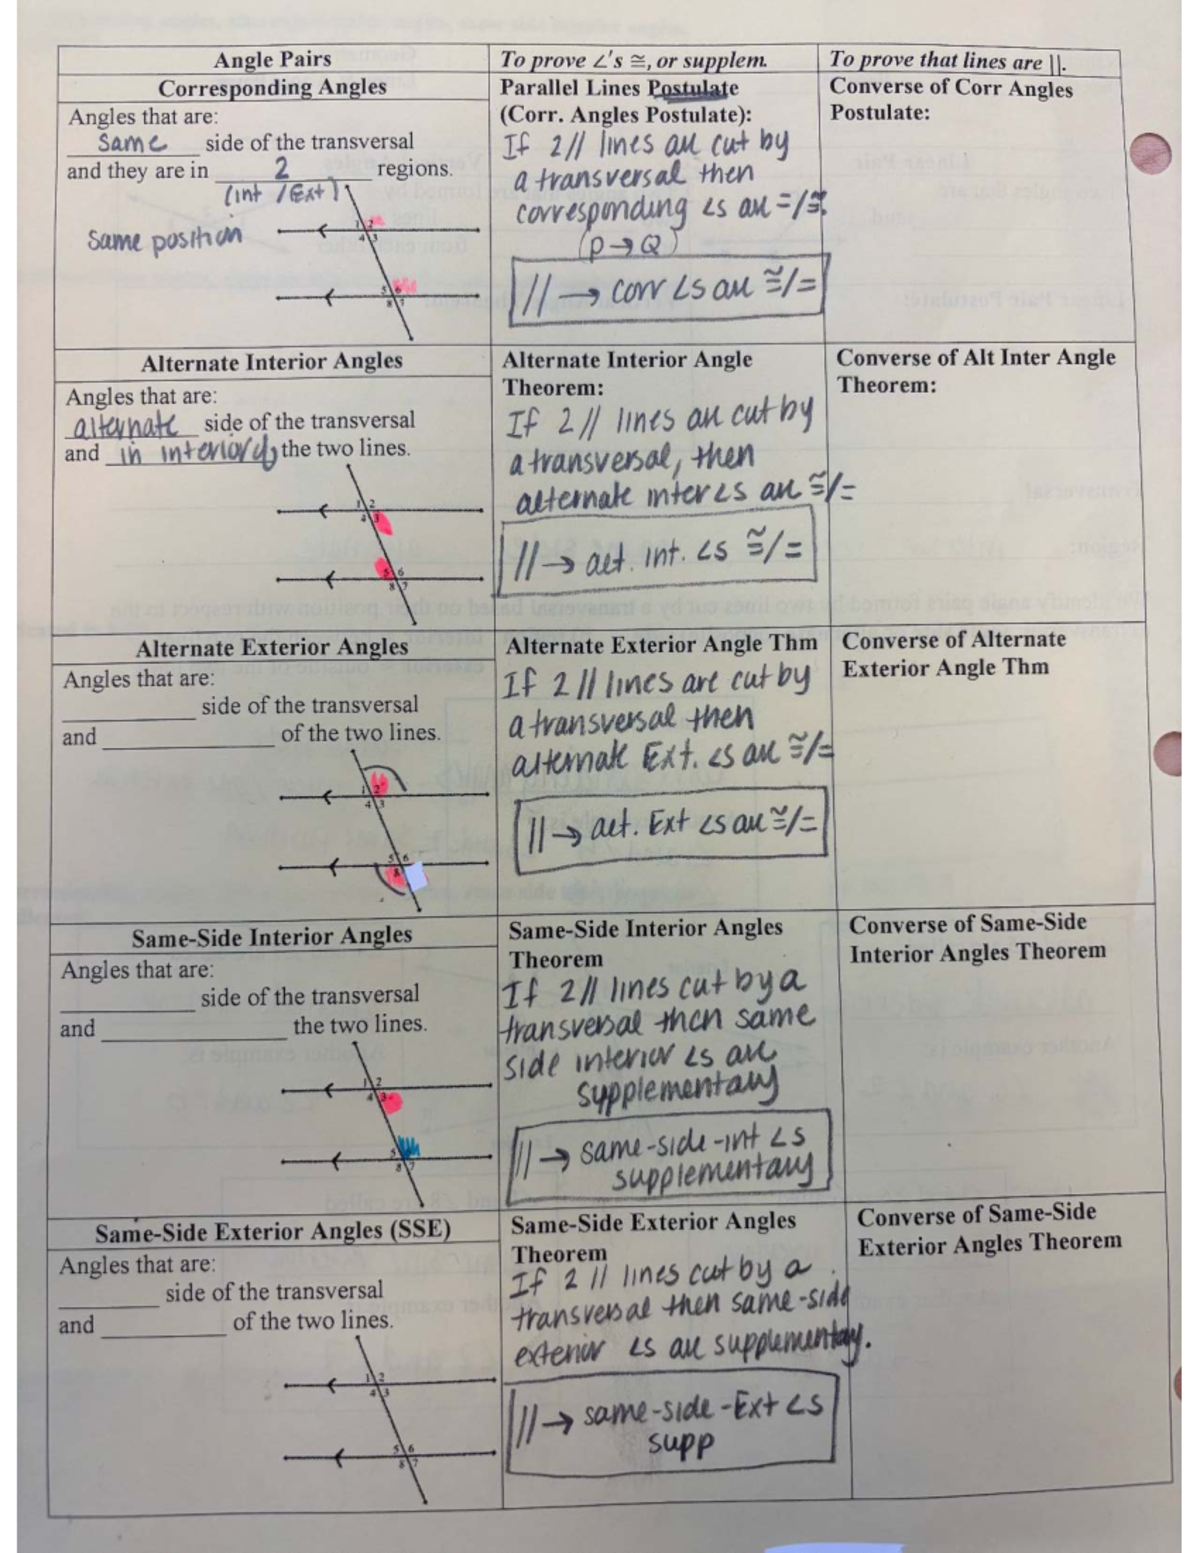 Angle Pairs
To prove ∠'s ≅, or supplem.
To prove that lines are ||.
Corresponding Angles
Angles that are:
same side of the transversal
and they are in 2 regions.
(int / Ext)
Same position
1 2
4 3
5 6
8 7
Parallel Lines Postulate
(Corr. Angles Postulate):
If 2 // lines are cut by
a transversal then
corresponding ∠s are =/≅.
(P → Q)
// → corr ∠s are ≅/=
Converse of Corr Angles
Postulate:
Alternate Interior Angles
Angles that are:
alternate side of the transversal
and in interior of the two lines.
1 2
4 3
5 6
8 7
Alternate Interior Angle
Theorem:
If 2 // lines are cut by
a transversal, then
alternate inter ∠s are ≅/=
// → alt. int. ∠s ≅/=
Converse of Alt Inter Angle
Theorem:
Alternate Exterior Angles
Angles that are:
side of the transversal
and of the two lines.
1 2
4 3
5 6
8
Alternate Exterior Angle Thm
If 2 // lines are cut by
a transversal then
alternate Ext. ∠s are ≅/=
// → alt. Ext ∠s are ≅/=
Converse of Alternate
Exterior Angle Thm
Same-Side Interior Angles
Angles that are:
side of the transversal
and the two lines.
1 2
4 3
5
8 7
Same-Side Interior Angles
Theorem
If 2 // lines cut by a
transversal then same
side interior ∠s are
supplementary
// → same-side-int ∠s
supplementary
Converse of Same-Side
Interior Angles Theorem
Same-Side Exterior Angles (SSE)
Angles that are:
side of the transversal
and of the two lines.
1 2
4 3
5 6
8 7
Same-Side Exterior Angles
Theorem
If 2 // lines cut by a
transversal then same-side
exterior ∠s are supplementary.
// → same-side-Ext ∠s
supp
Converse of Same-Side
Exterior Angles Theorem